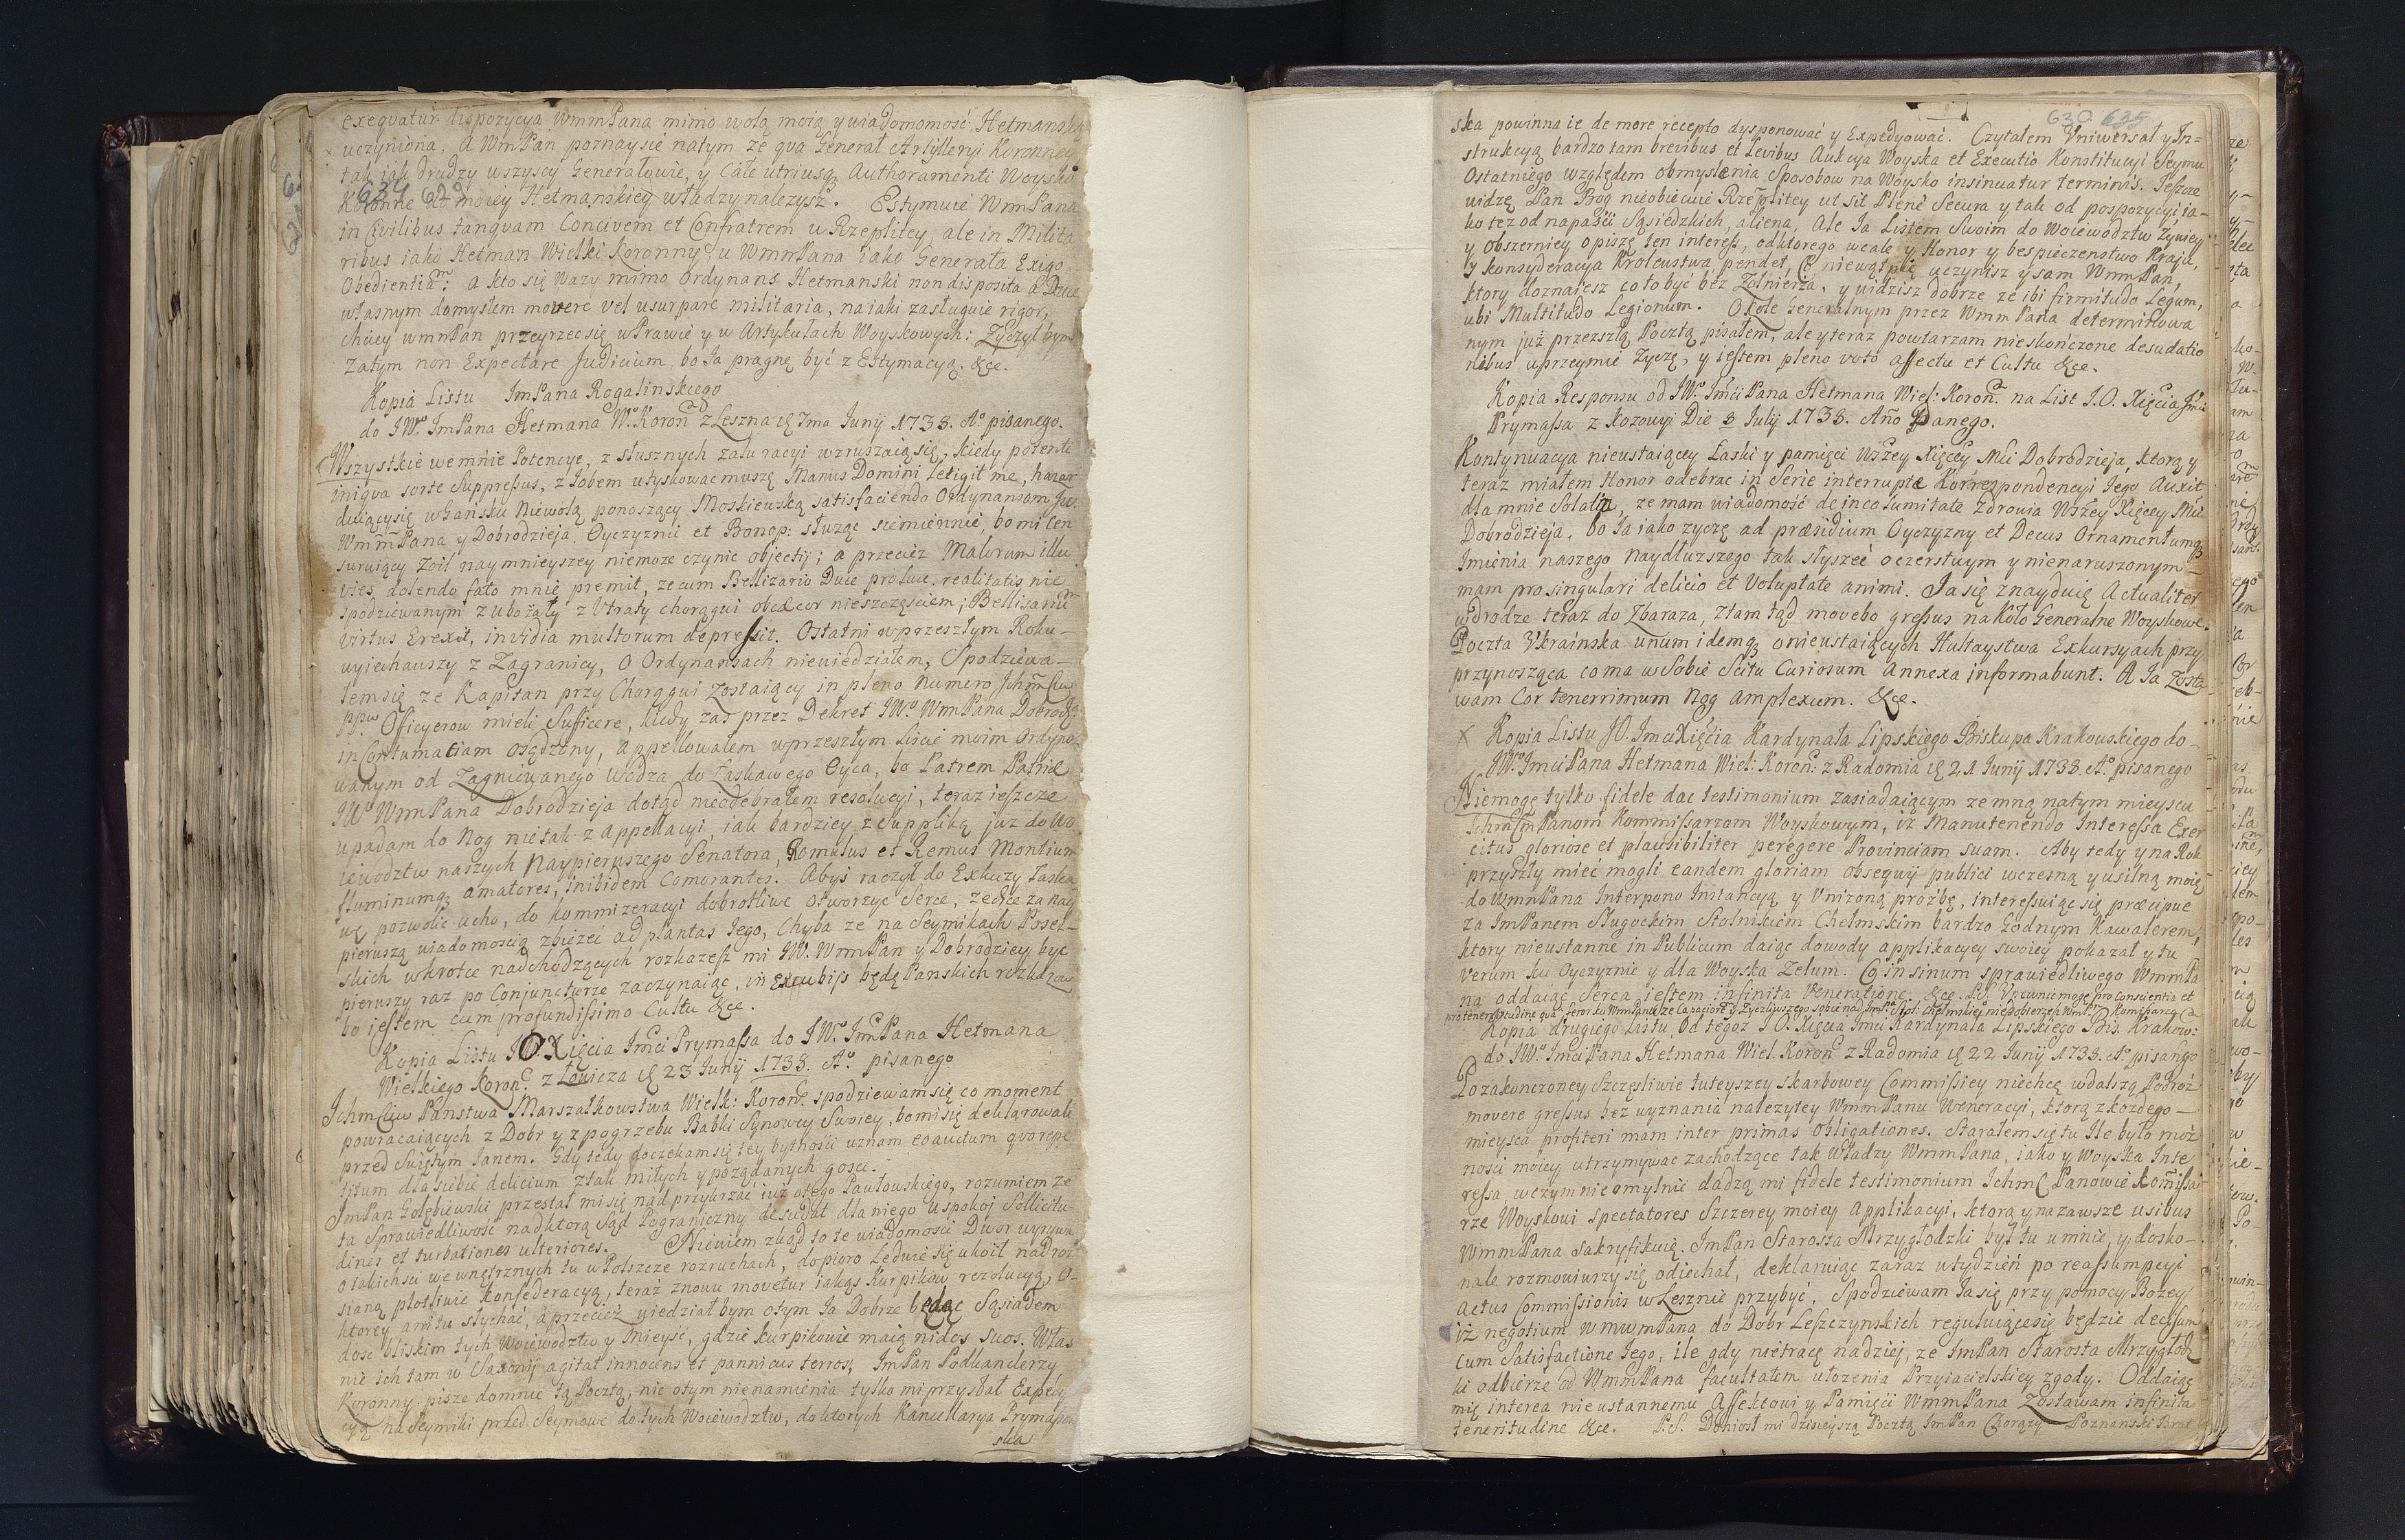 exequatur dispozycya WmmPana mimo wolą moią y wiadomomość Hetmanską
uczyniona, a WmPan poznaysię natym że qua Generał Artylleryi Koronney
tak iak drudzy wszyscy Generałowie, y Całe utriusq Authoramenti Woysko
634 629
Koronne do moiey Hetmanskiey władzy należysz. Estymuię WmmPana
in Civilibus tanquam Concivem et Confratrem w Rzeplitey, ale in Milita
ribus iako Hetman Wielki Koronny, u WmmPana iako Generała Exigo
Obedientiam: a kto się waży mimo Ordynans Hetmanski non disposita a Duce
własnym domysłem movere vel usurpare militaria, na iaki zasługuie rigor,
chciey wmmPan przeyrzec się w Prawie y w Artykułach Woyskowych: Zyczył bym
zatym non Expectare Judicium, bo Ja pragnę być z Estymacyą. &ce.
Kopia Listu ImPana Rogalinskiego
do JWo ImPana Hetmana Wo Koron z Leszna 1ma Junij 1738. Ao pisanego.
Wszystkie we mnie Potencye, z słusznych żalu racyi wzruszaią się, kiedy potenti
iniqua sorte Suppressus, z Jobem utyskowac muszę Manus Domini tetigit me, hazar
duiący się w Gańsku Niewolą ponoszący Moskiewską satisfaciendo Ordynansom JW.
WmmPana y Dobrodzieja, Oyczyznie et Bono p: służąc niemiennie, bo mi cen
suruiący Zoil naymnieyszey niemoże czynic objectij; a przecież Malorum illu
vies dolendo fato mnie premit, ze cum Bellizario Duce prolwe realitatis nie
spodziewanym zubożały z Utraty chorągwi obcæcor nieszczęściem; Bellisarium
virtus Erexit, invidia multorum depressit. Ostatni w przeszłym Roku
wyiechawszy z Zagranicy, o Ordynansach niewiedziałem, Spodziewa-
łem się że Kapitan przy Chorągwi zostaiący in pleno Numero Ichm
ppw Officyerow mieli Sufficere, kiedy zas przez Dekret JWo WmPana Dobrodz
in Contumatiam osądzony, appellowałem w przeszłym Liscie moim Ordyno
wanym od Zagniewanego Wodza do Łaskawego Oyca, bo Patrem Patriæ
JWo WmmPana Dobrodzieja dotąd nieodebrałem resolucyi, teraz ieszcze
upadam do Nog nietak z appellacyi, iak bardziey z Suppliką już do Wo
iewodztw naszych Naypierwszego Senatora, Romulus et Remus Montium
fluminumq amatores, inibidem Comorantes. Abyś raczył do Exkuzy Łaska
wę pozwolic ucho, do kommizeracyi dobrotliwe otworzyć Serce, zechce za nay
pierwszą wiadomoscią zbieżeć ad plantas Jego, Chyba że na Seymikach Posel-
skich wkrotce nadchodzących rozkażesz mi JW. WmmPan y Dobrodziey być
pierwszy raz po Conjuncturze zaczynaiąc, in excubijs będę Panskich rozkazow
bo iestem cum profundissimo Cultu &ce.
Kopia Listu JO. Xięcia Imci Prymassa do JWo ImPana Hetmana
Wielkiego Koron: z Łowicza 23 Junij 1738. Ao pisanego
Ichmciow Państwa Marszałkowstwa Wielk: Koron: spodziewam się co moment
powracaiących z Dobr y z pogrzebu Babki Synowey Swoiey, bo mi się deklarowali
przed Swiętym Janem. Gdy tedy doczekam się tey bytności uznam coauctum quo repe
titum dla siebie delicium z tak miłych y pożądanych gosci.
ImPan Gołębiewski przestał mi się nadprzykrzać już o tego Pawłowskiego, rozumiem że
ta Sprawiedliwość nad którą Sąd Pograniczny desudat dla niego uspokoj Sollicitu
dines et turbationes ulteriores. Niewiem zkąd to te wiadomości Dwor wyrywa
o iakichsci wewnętrznych tu w Polszcze rozruchach, dopioro Ledwie się ukoił nad roz
sianą płotliwie konfederacyą, teraz znowu movetur iakąs Kurpikow rezolucyą, o-
ktorey ani tu słychać, a przecież wiedział bym o tym Ja Dobrze będąc Sąsiadem
dosc bliskim tych Woiewodztw y Mieysc, gdzie Kurpikowie maią nidos suos. Włas
nie ich tam w Saxonij agitat innocens et pannicus terror, ImPan Podkanclerzy
Koronny pisze do mnie tą Pocztą, nic o tym nienamienia tylko mi przysłał Expedy
cyą na Seymiki przed Seymowe do tych Woiewodztw, do ktorych Kancellarya Prymasow
ska
630. 635
ska powinna ie de more recepto dysponować y Expedyować. Czytałem Vniwersał y In=
strukcyą bardzo tam brevibus et Levibus Aukcya Woyska et Executio Konstitucyi Seymu
Ostatniego względem obmyslenia Sposobow na Woysko insinuatur terminis. Jeszcze
widzę Pan Bog nieobiecuie Rzeplitey ut sit Plene Secura y tak od pospozycyi ia-
ko też od napaści Sąsiedzkich, aliena, Ale Ja Listem Swoim do Woiewodztw żywiey
y obszerniey opiszę ten interess, od ktorego weale y Honor y bespieczenstwo Kraju,
y konsyderacya Krolewstwa pendet, Co niewątpię uczynisz y sam WmmPan,
ktory doznaiesz co to być bez Żołnierza, y widzisz dobrze ze ibi firmitudo Legum,
ubi Multitudo Legionum. O kole Generalnym przez WmmPana determinowa
nym już przeszłą Pocztą pisałem, ale y teraz powtarzam nieskończone desudatio
nibus uprzeymie Zyczę, y iestem pleno voto affectu et Cultu &ce.
Kopia Responsu od JWo Imci Pana Hetmana Wiel: Koron: na List J.O. Xięcia Jmci
Prymassa z Kozowyi Die 8 Julij 1738. Ano Danego.
Kontynuacya nieustaiącey Łaski y pamięci Wszey Xięcey Mci Dobrodzieja, ktorą y
teraz miałem Honor odebrac in Serie interruptæ Korrespondencyi Jego Auxit
dla mnie Solatia, ze mam wiadomość de incolumitate Zdrowia Wszey Xięcey Mci
Dobrodzieja, bo Ja iako zyczę ad præsidium Oyczyzny et Decus Ornamentumq
Imienia naszego naydłuzszego tak słyszeć o czerstwym y nienaruszonym
mam pro singulari delicio et Voluptate animi. Ja się znayduię Actualiter
w drodze teraz do Zbaraza, z tam tąd movebo gressus na Koło Generalne Woyskowe.
Poczta Ukrainska unum idemq o nieustaiących Hultaystwa Exkursyach przy
przynosząca co ma w Sobie Scitu Curiosum annexa informabunt. A Ja Zosta
wam Cor tenerrimum Nog amplexum. &ce.
X Kopia Listu JO. Imci Xięcia Kardynała Lipskiego Biskupa Krakowskiego do
JWo Jmci Pana Hetmana Wiel: Koron: z Radomia 21 Junij 1738. Ao pisanego
Niemogę tylko fidele dac testimonium zasiadaiącym ze mną natym mieyscu
Ichm Panom Kommissarzom Woyskowym, iż Manutenendo Interessa Exer
citus gloriose et plausibiliter peregere Provinciam suam. Aby tedy y na Rok
przyszły mieć mogli eandem gloriam obsequij publici wczesną y usilną moię
do WmmPana Interpono Instancyą y Vniżoną prożbę, interessuiąc się præcipue
za ImPanem Sługockim Stolnikiem Chełmskim bardzo Godnym Kawalerem,
ktory nieustanne in Publicum daiąc dowody applikacycy swoiey pokazał y tu
verum ku Oyczyznie y dla Woyska Zelum. Co in sinum sprawiedliwego WmmPa
na oddaiąc Serca iestem infinita Veneratione &ce. P.S. Upewnic mogę pro conscientia et
Kopia drugiego Listu od tegoż J.O. Xięcia Imci Kardynała Lipskiego Bis. Krakow:
do JWo Jmci Pana Hetmana Wiel. Koron z Radomia 22 Junij 1738. Ao pisango
Po zakonczoney Szczęsliwie tuteyszey skarbowey Commissiey niechcę w dalszą Podroż
movere gressus bez wyznania nalezytey WmmPanu Weneracyi, ktorą z kozdego
mieysca profiteri mam inter primas Obligationes. Starałem się tu Ile było moż
nosci moiey utrzymywac zachodzące tak Władzy WmmPana, iako y Woyska Inte
ressa, w czym nieomylnie dadzą mi fidele testimonium Ichmc Panowie Komissa
rze Woyskowi spectatores Szczerey moiey applikacyi, ktorą y na zawsze usibus
WmmPana sakryfikuię. ImPan Starosta Mrzygłodzki był tu u mnie, y dosko-
nale rozmowiwszy się odiechał, deklaruiąc zaraz w tydzień po reassumpcyi
actus Commissionis w Lesznie przybyć. Spodziewam Ja się przy pomocy Bozey
iż negotium WmwmPana do Dobr Leszczynskich regulwiące się będzie decisum
cum Satisfactione Jego, ile gdy nietracę nadziej, że ImPan Starosta Mrzygłodz
ki odbierze od WmmPana facultatem ułożenia Przyiacielskiey zgody. Oddaiąc
mię interea nieustannemu Affektowi y Pamięci WmmPana Zostawam infinita
teneritudine &ce. P.S. Doniosł mi dzisieyszą Pocztą ImPan Chorąży Poznanski Brat